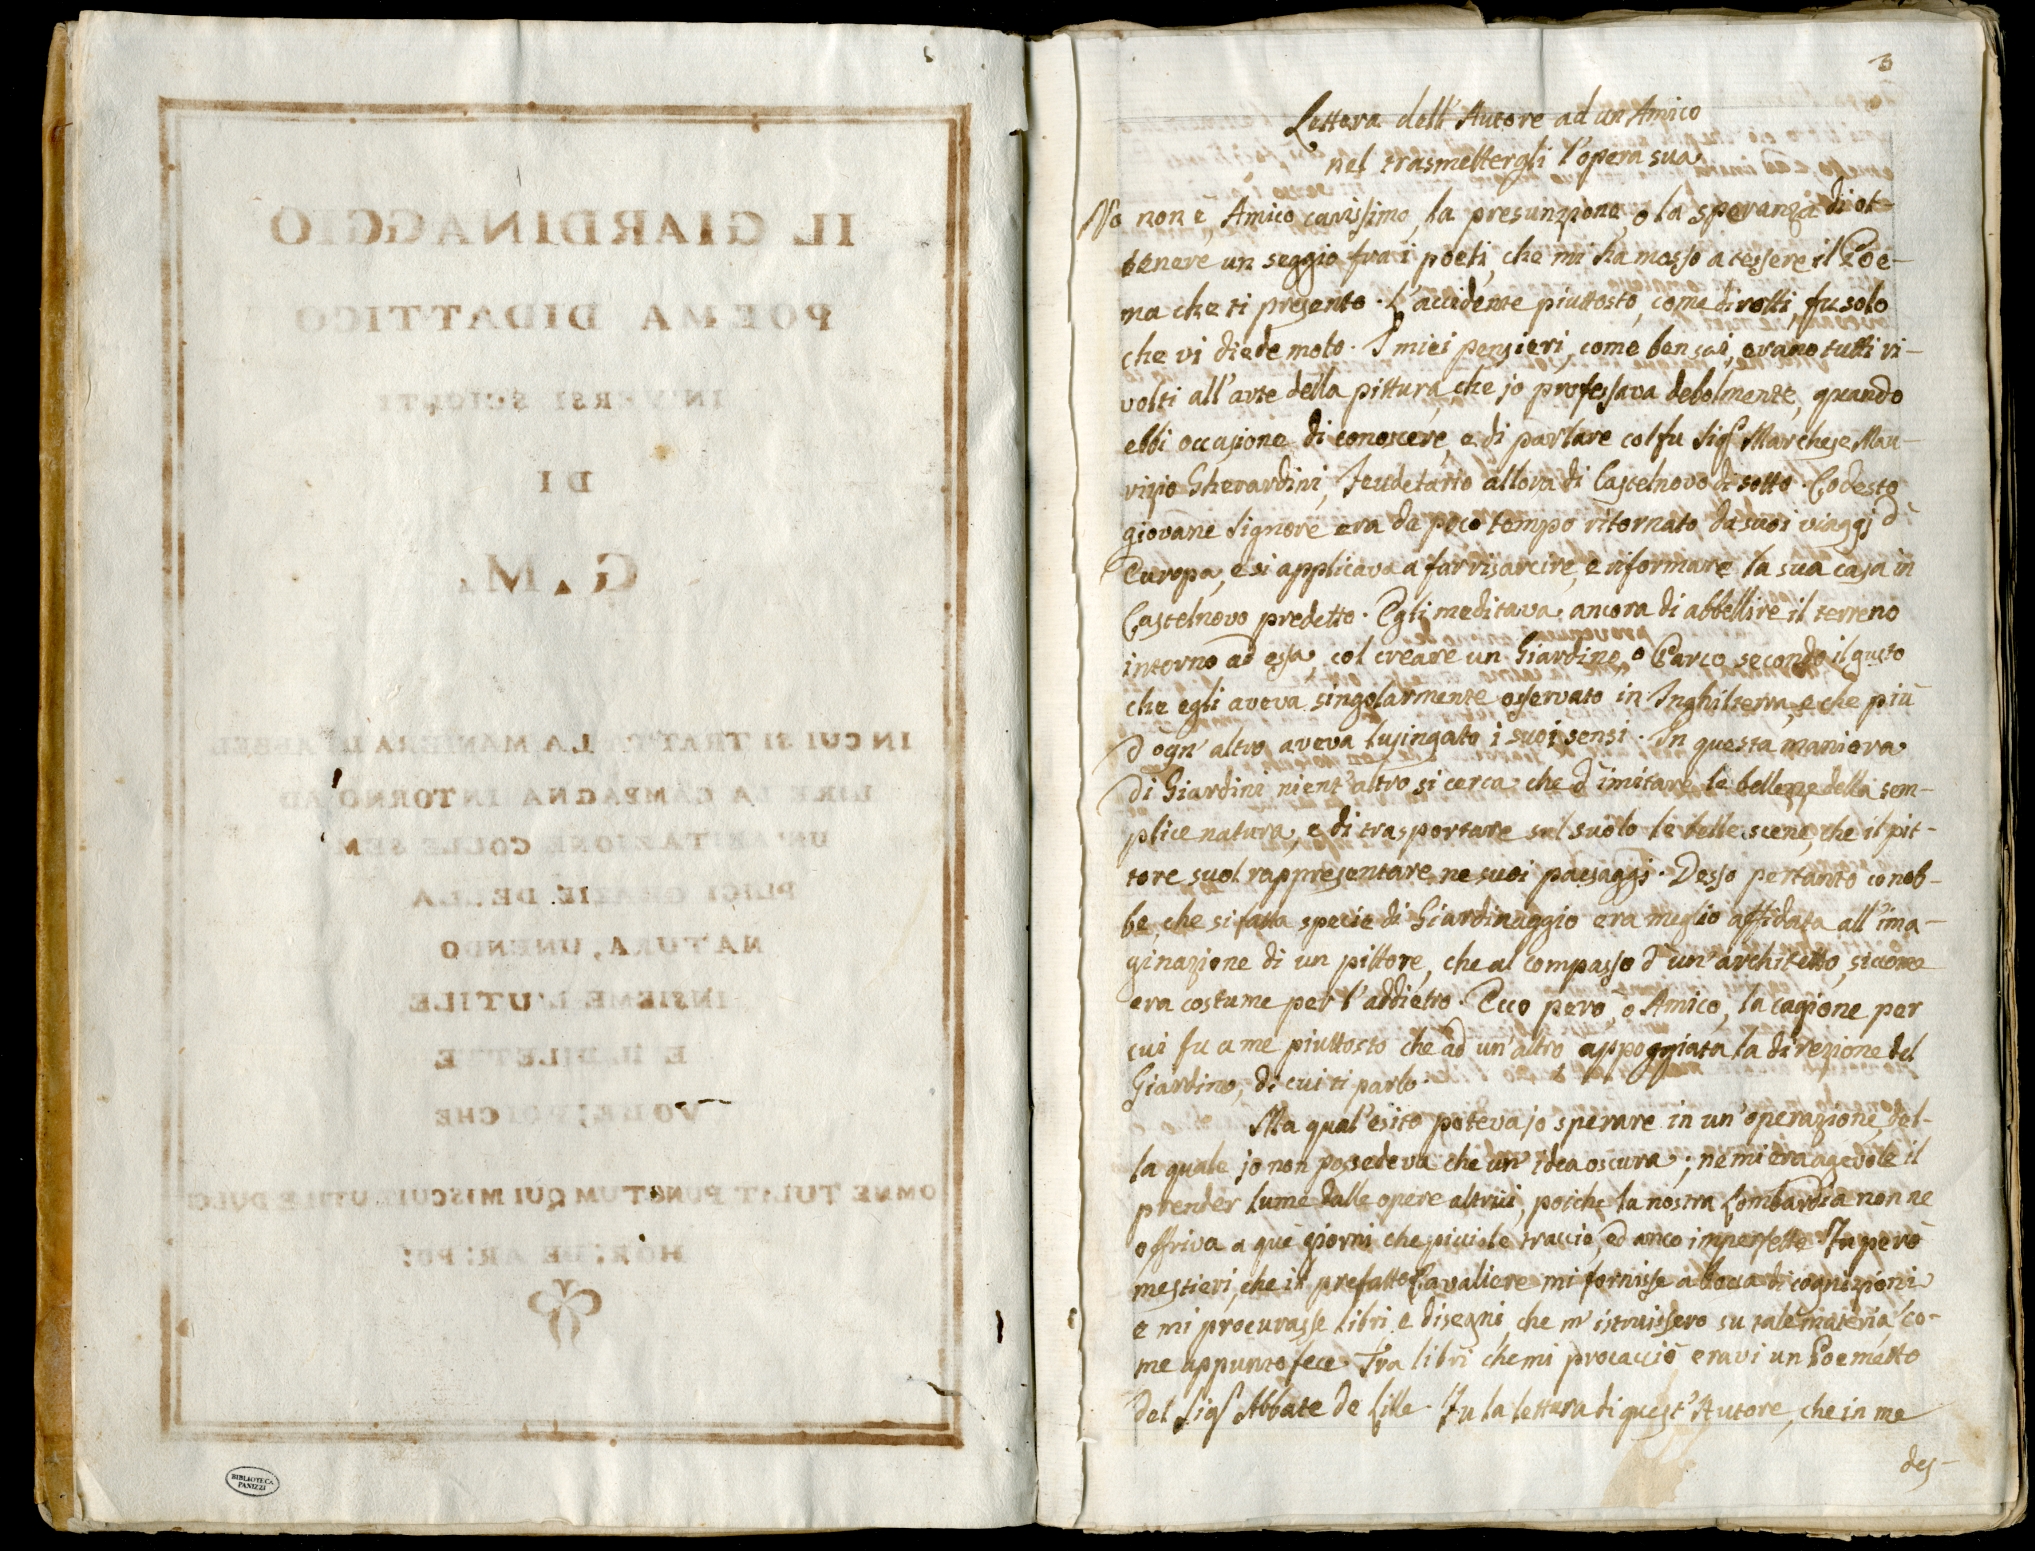 IL GIARDINAGGIO
POEMA DIDATTICO
IN VERSI SCIOLTI
DI
G. M.
IN CUI SI TRATTA LA MANIERA D'ABBEL
LIRE LA CAMPAGNA INTORNO AD
UN'ABITAZIONE COLLE SEM
PLICI GRAZIE DELLA
NATURA, UNENDO
INSIEME L'UTILE
E IL DILETTE
VOLE; POICHE
OMNE TULIT PUNCTUM QUI MISCUIT UTILE DULCI
HOR: DE AR: PO:
BIBLIOTECA
PANIZZI
3
Lettera dell'Autore ad un Amico
nel trasmettergli l'opera sua
No non è, Amico carissimo, la presunzione, o la speranza di ot-
tenere un seggio fra i poeti, che mi ha mosso a tessere il Poe-
ma che ti presento. L'accidente piuttosto, come dirotti, fu solo
che vi diede moto. I miei pensieri, come ben sai, erano tutti ri-
volti all'arte della pittura, che jo professava debolmente, quando
ebbi occasione di conoscere, e di parlare col fu Sig.r Marchese Mau-
rizio Gherardini, Feudetario allora di Castelnovo di sotto. Codesto
giovane Signore era da poco tempo ritornato da suoi viaggi d'
Europa, e si applicava a far risarcire, e riformare la sua casa in
Castelnovo predetto. Egli meditava ancora di abbellire il terreno
intorno ad essa, col creare un Giardino, o Parco secondo il gusto
che egli aveva singolarmente osservato in Inghilterra, e che più
d'ogn'altro aveva lusingato i suoi sensi. In questa maniera
di Giardini nient'altro si cerca che d'imitare le bellezze della sem-
plice natura, e di trasportare sul suolo le belle scene, che il pit-
tore suol rappresentare ne suoi paesaggi. Desso pertanto conob-
be, che sifatta specie di Giardinaggio era meglio affidata all'ima-
ginazione di un pittore, che al compasso d'un'architetto, siccome
era costume per l'addietro. Ecco però, o Amico, la cagione per
cui fu a me piuttosto che ad un'altro appoggiata la direzione del
Giardino, di cui ti parlo.
Ma qual'esito poteva jo sperare in un'operazione, del-
la quale jo non possedeva che un'idea oscura; ne mi era agevole il
prender lume dalle opere altrui, poiche la nostra Lombardia non ne
offriva a que giorni che picciole traccie, ed anco imperfette. Fu però
mestieri, che il prefatto Cavaliere mi fornisse a bocca di cognizioni
e mi procurasse libri, e disegni, che m'istruissero su tale materia, co-
me appunto fece. Tra libri che mi procacciò eravi un Poemetto
del Sig.r Abbate de Lille. Fu la lettura di quest'Autore, che in me
des-